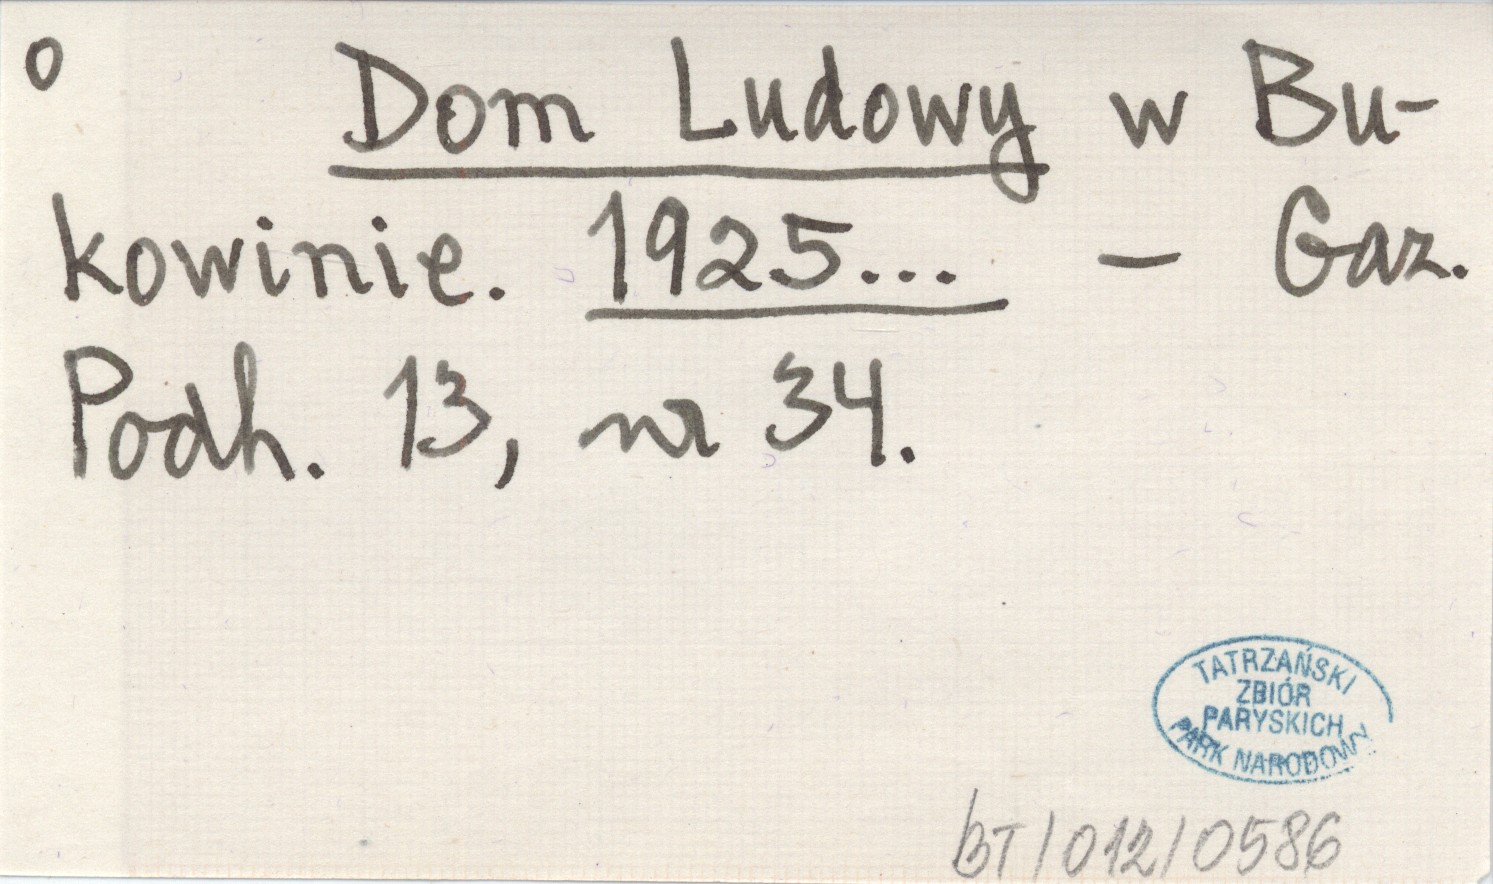 o Dom Ludowy w Bu-
kowinie. 1925... – Gaz.
Podh. 13, nr 34.
TATRZAŃSKI
ZBIÓR
PARYSKICH
PARK NARODOWY
BT/012/0586